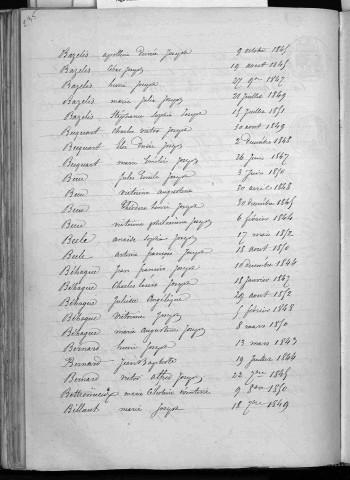 Bazelis apolline Désirée Joseph 9 octobre 1845
Bazelis Joseph 19 aout 1845
Bazelis henri Joseph 27 9bre 1847
Bazelis marie Julie Joseph 21 Juillet 1849
Bazelis Stéphanie Sophie Joseph 15 Juillet 1851
Bequart Charles victor Joseph 30 aout 1849
Bequart Désiré Joseph 2 décembre 1848
Bequart marie Emélie Joseph 26 Juin 1847
Bécu Jules Emile Joseph 3 Juin 1850
Bécu victorine augustine 30 avril 1848
Bécu Théodore Louis Joseph 30 décembre 1845
Bécu victorine philomène Joseph 6 février 1844
Béele anaïse Sophie Joseph 17 mai 1852
Béele antoine françois Joseph 18 aout 1850
Béhague Jean francois Joseph 10 décembre 1844
Béhague Charles Louis Joseph 18 Janvier 1847
Béhague Juliette Angélique 29 aout 1852
Béhague victorine Joseph 5 février 1848
Béhague marie augustine Joseph 8 mars 1850
Bernard henri Joseph 13 mars 1843
Bernard Jean Baptiste 19 Juillet 1844
Bernard victor alfred Joseph 22 7bre 1845
marie 9 8bre 1850
Billaut marie Joseph 18 7bre 1849